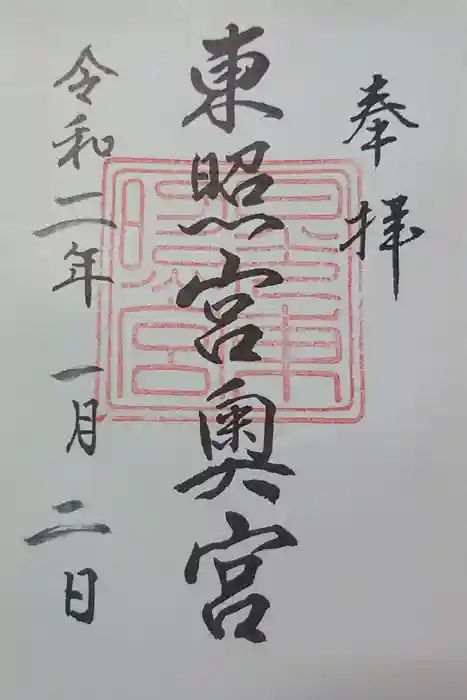 奉拝
東照宮奥宮
令和二年一月二日